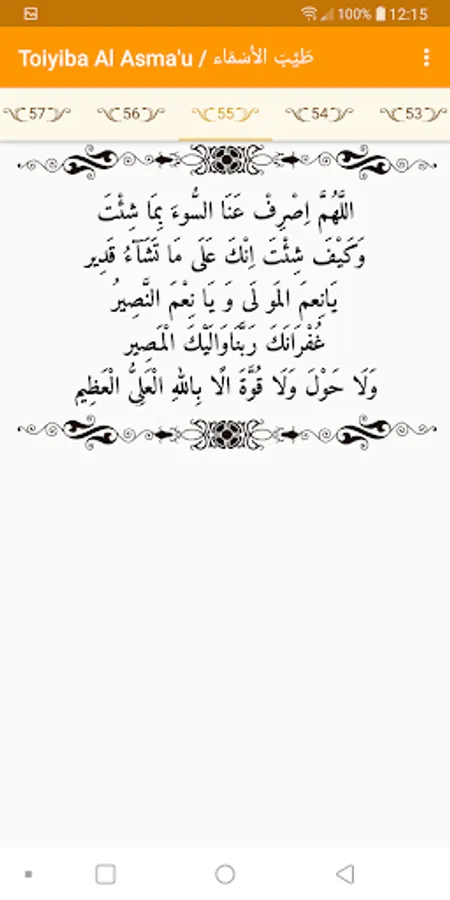 100% 12:15
Toiyiba Al Asma'u / طَيِّبَ الأَسْمَاء
57 56 55 54 53
اللَّهُمَّ اِصْرِفْ عَنَا السُّوءَ بِمَا شِئْتَ
وَكَيْفَ شِئْتَ اِنْكَ عَلَى مَا تَشَآءُ قَدِير
يَانِعمَ المَو لَى وَ يَا نِعْمَ النَّصِيرُ
غُفْرَانَكَ رَبَّنَاوَالَيْكَ الْمَصِير
وَلَا حَوْلَ وَلَا قُوَّةَ الَّا بِاللهِ الْعَلِىُّ الْعَظِيم